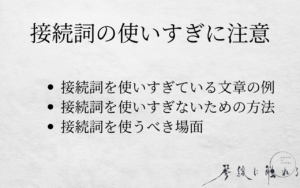 接続詞の使いすぎに注意
• 接続詞を使いすぎている文章の例
• 接続詞を使いすぎないための方法
• 接続詞を使うべき場面
に触れる